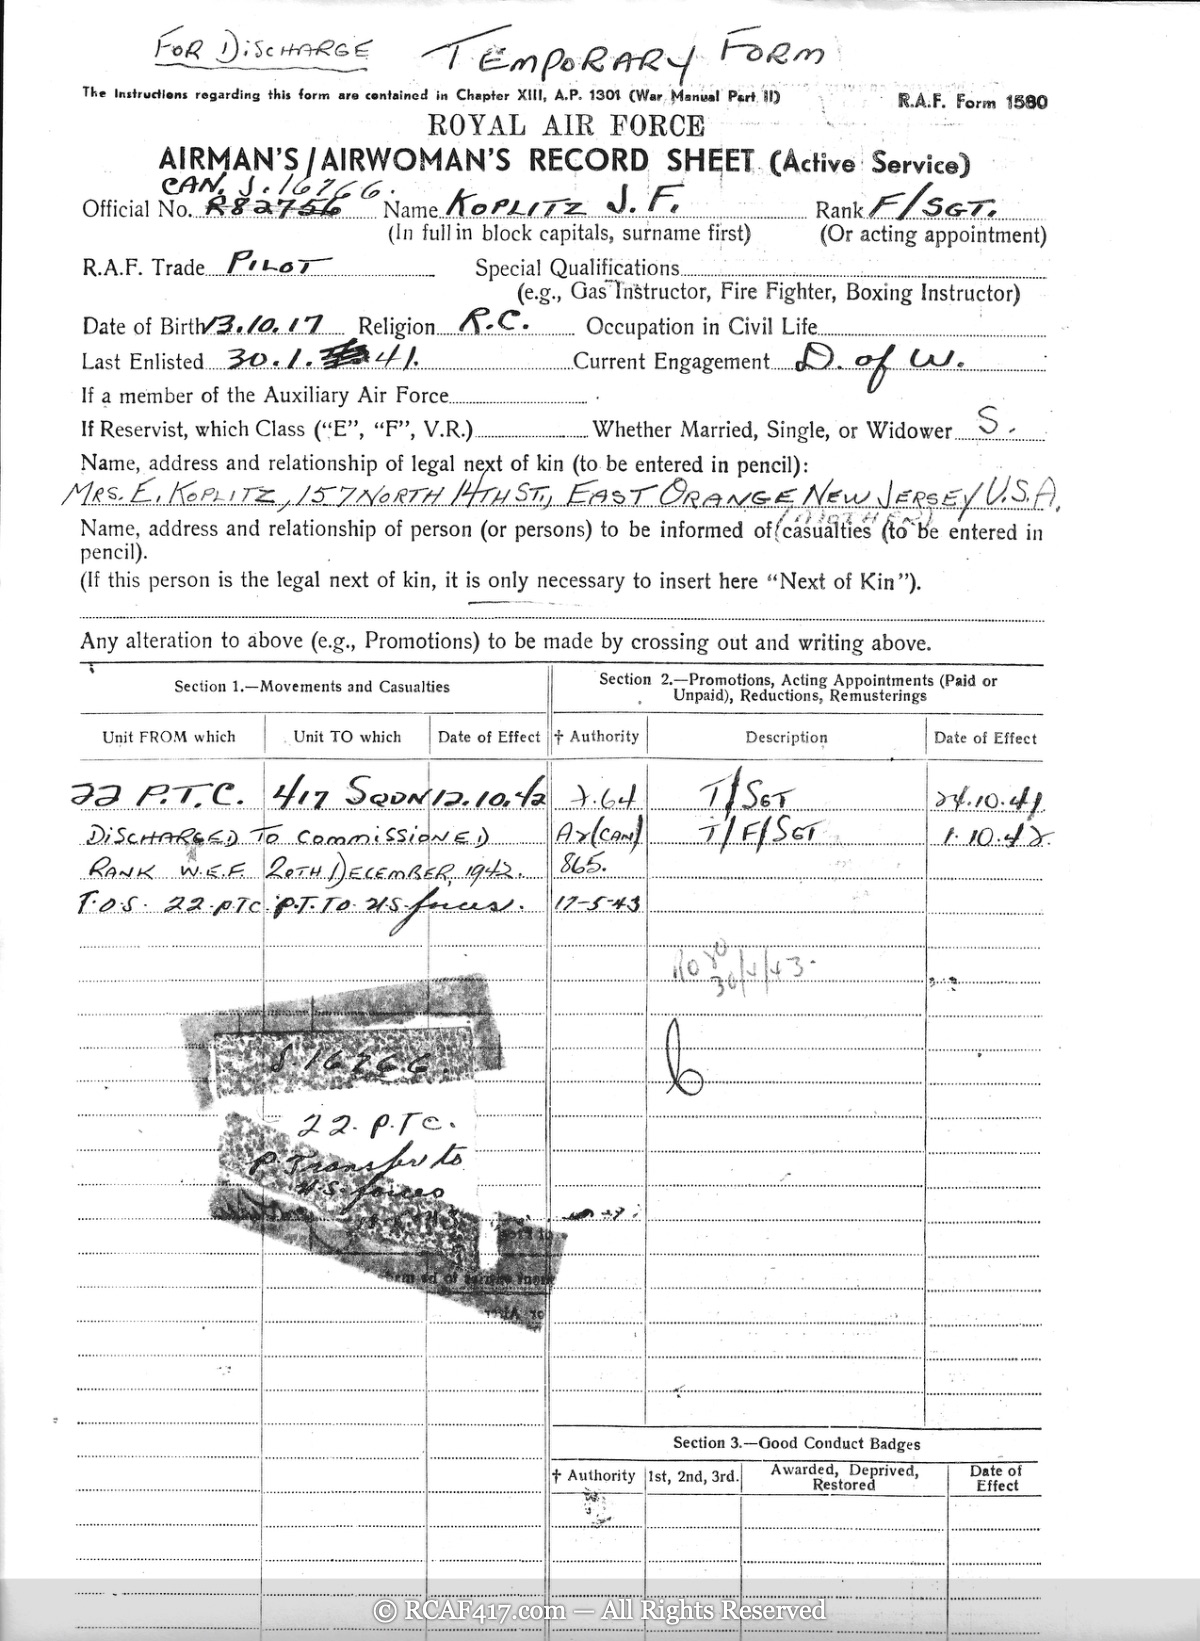 FOR DISCHARGE TEMPORARY FORM
The Instructions regarding this form are contained in Chapter XIII, A.P. 1301 (War Manual Part II) R.A.F. Form 1580
ROYAL AIR FORCE
AIRMAN'S/AIRWOMAN'S RECORD SHEET (Active Service)
CAN. J.16766.
Official No. R82756 Name KOPLITZ J. F. Rank F/SGT.
(In full in block capitals, surname first) (Or acting appointment)
R.A.F. Trade PILOT Special Qualifications
(e.g., Gas Instructor, Fire Fighter, Boxing Instructor)
Date of Birth 13.10.17 Religion R.C. Occupation in Civil Life
Last Enlisted 30.1. 41. Current Engagement D. of W.
If a member of the Auxiliary Air Force
If Reservist, which Class ("E", "F", V.R.) Whether Married, Single, or Widower S.
Name, address and relationship of legal next of kin (to be entered in pencil):
MRS. E. KOPLITZ, 157 NORTH 14TH ST., EAST ORANGE, NEW JERSEY U.S.A.
(MOTHER)
Name, address and relationship of person (or persons) to be informed of casualties (to be entered in
pencil).
(If this person is the legal next of kin, it is only necessary to insert here "Next of Kin").
Any alteration to above (e.g., Promotions) to be made by crossing out and writing above.
Section 1.—Movements and Casualties Section 2.—Promotions, Acting Appointments (Paid or
Unpaid), Reductions, Remusterings
Unit FROM which Unit TO which Date of Effect † Authority Description Date of Effect
22 P.T.C. 417 SQDN 12.10.42 T/SGT 24.10.41
DISCHARGED TO COMMISSIONED (CAN) T/F/SGT 1.10.42.
RANK W.E.F. 20TH DECEMBER, 1942. 865.
T.O.S. 22 PTC P.T. TO U.S forces. 17-5-43
30/4/43.
J.16766
22. P.TC.
P. Transfer to
U.S. forces
Section 3.—Good Conduct Badges
† Authority 1st, 2nd, 3rd. Awarded, Deprived,
Restored Date of
Effect
© RCAF417.com — All Rights Reserved